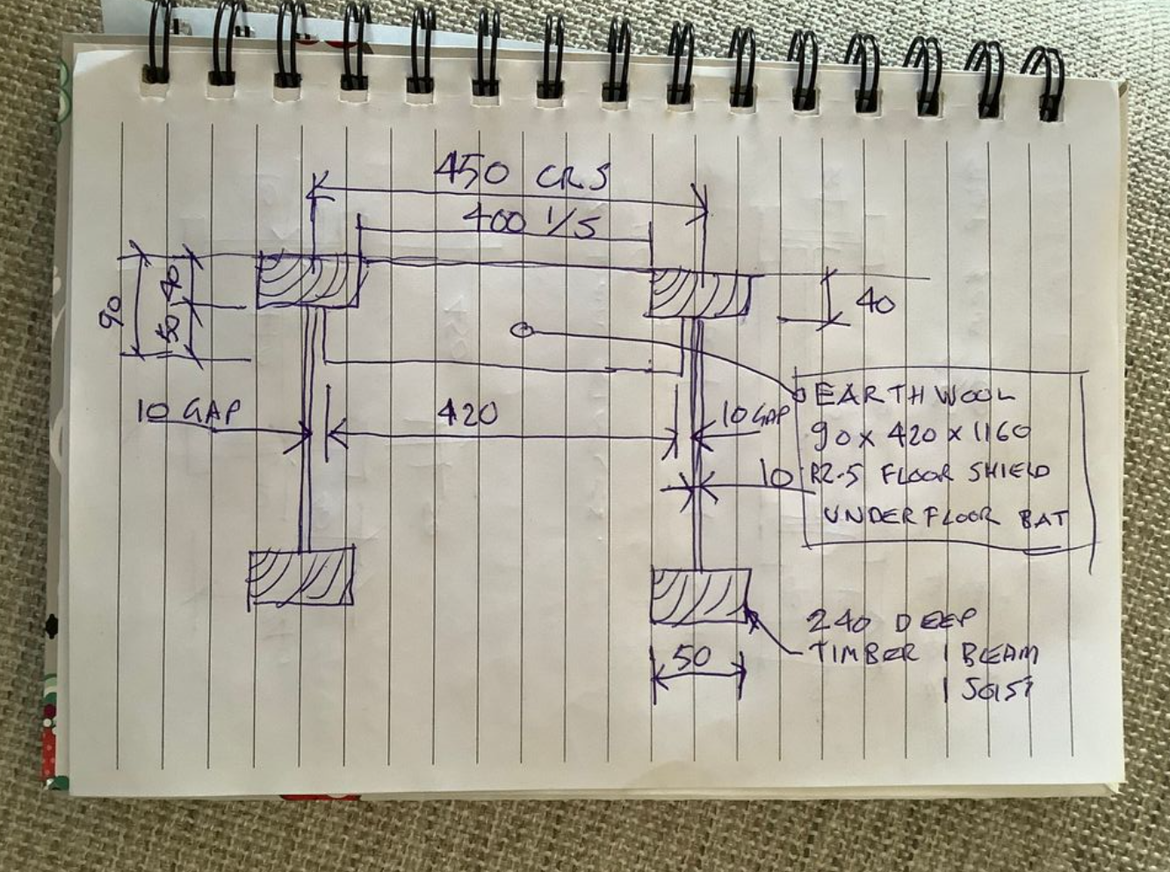 450 CRS
400 I/S
90
40
50
40
10 GAP
420
10 GAP
10
EARTHWOOL
90 x 420 x 1160
R2.5 FLOOR SHIELD
UNDERFLOOR BAT
240 DEEP
TIMBER I BEAM
50